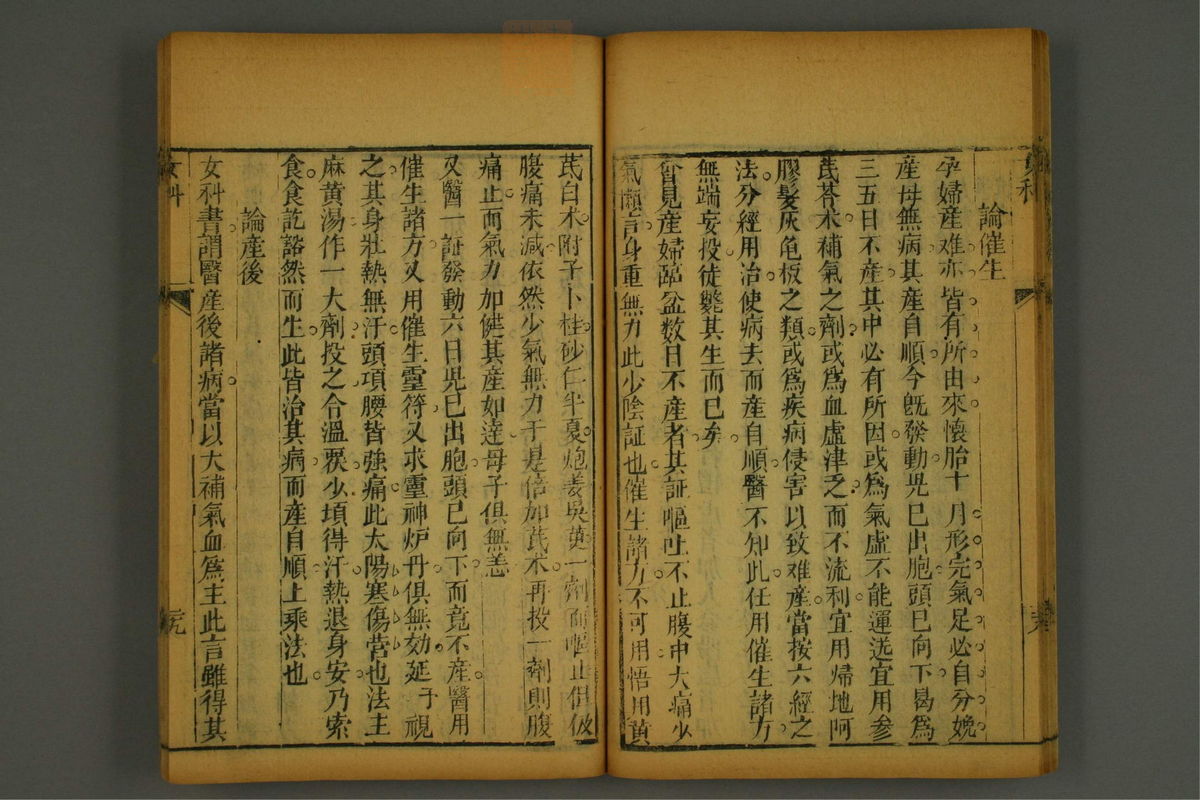 論催生
孕婦產难亦皆有所由來懷胎十月形完氣足必自分娩
產母無病其產自順今既發動児已出胞頭已向下曷爲
三五日不產其中必有所因或爲氣虛不能運送宜用参
芪苓术補氣之劑或爲血虛津乏而不流利宜用歸地阿
膠髮灰龟板之類或爲疾病侵害以致难產當按六經之
法分經用治使病去而產自順醫不知此任用催生諸方
無端妄投徒斃其生而已矣
曾見產婦臨盆数日不產者其証嘔吐不止腹中大痛少
氣懶言身重無力此少陰証也催生諸方不可用悟用黃
芪白术附子卜桂砂仁半夏炮姜吳萸一劑而嘔止但
腹痛未減依然少氣無力于是倍加芪术再投一劑則腹
痛止而氣力加健其產如達母子俱無恙
又醫一証發動六日児已出胞頭已向下而竟不產醫用
催生諸方又用催生靈符又求靈神炉丹俱無効延予視
之其身壯熱無汗頭項腰皆強痛此太陽寒傷营也法主
麻黃湯作一大劑投之令溫覆少頃得汗熱退身安乃索
食食訖豁然而生此皆治其病而產自順上乘法也
論產後
女科書謂醫產後諸病當以大補氣血爲主此言雖得其
女科